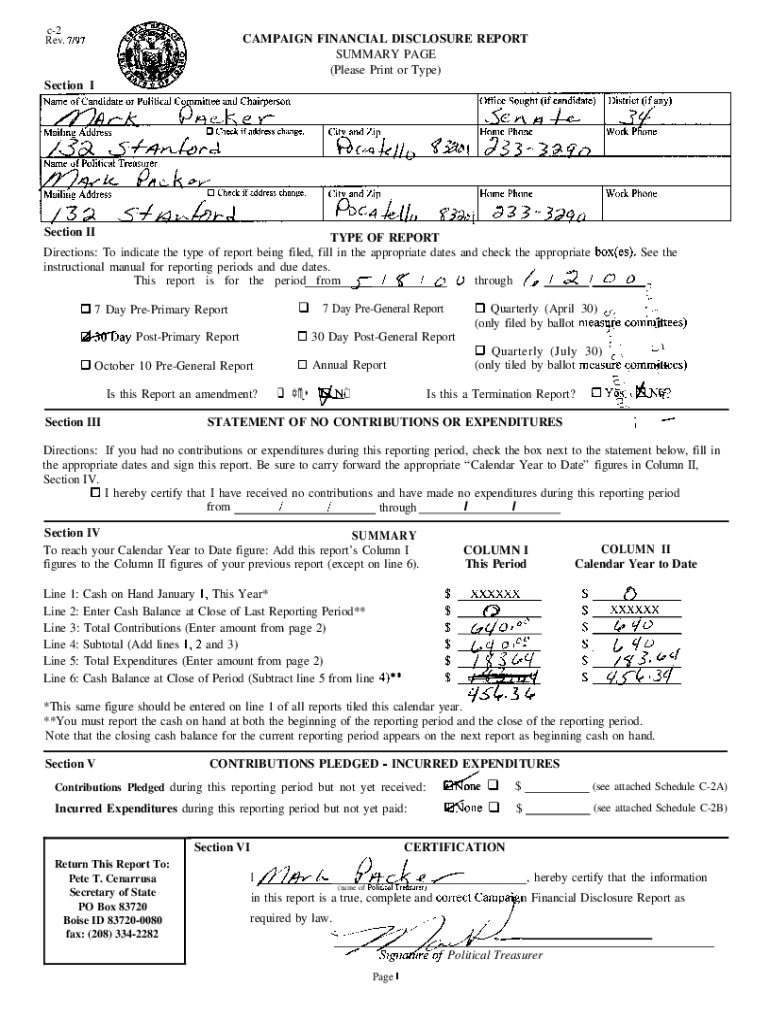 c-2
Rev. 7/97
CAMPAIGN FINANCIAL DISCLOSURE REPORT
SUMMARY PAGE
(Please Print or Type)
Section I
Name of Candidate or Political Committee and Chairperson Office Sought (if candidate) District (if any)
Mark Packer Senate 34
Mailing Address Check if address change. City and Zip Home Phone Work Phone
132 Stanford Pocatello 83201 233-3290
Name of Political Treasurer
Mark Packer
Mailing Address Check if address change. City and Zip Home Phone Work Phone
132 Stanford Pocatello 83201 233-3290
Section II
TYPE OF REPORT
Directions: To indicate the type of report being filed, fill in the appropriate dates and check the appropriate box(es). See the
instructional manual for reporting periods and due dates.
This report is for the period from 5 / 8 / 00 through
7 Day Pre-Primary Report 7 Day Pre-General Report Quarterly (April 30)
(only filed by ballot measure committees)
30 Day Post-Primary Report 30 Day Post-General Report
Quarterly (July 30)
October 10 Pre-General Report Annual Report (only tiled by ballot measure committees)
Is this Report an amendment? No Is this a Termination Report? Yes No?
Section III STATEMENT OF NO CONTRIBUTIONS OR EXPENDITURES
Directions: If you had no contributions or expenditures during this reporting period, check the box next to the statement below, fill in
the appropriate dates and sign this report. Be sure to carry forward the appropriate “Calendar Year to Date” figures in Column II,
Section IV.
I hereby certify that I have received no contributions and have made no expenditures during this reporting period
from / / through / /
Section IV SUMMARY
To reach your Calendar Year to Date figure: Add this report’s Column I COLUMN I COLUMN II
figures to the Column II figures of your previous report (except on line 6). This Period Calendar Year to Date
Line 1: Cash on Hand January 1, This Year* $ XXXXXX $ 0
Line 2: Enter Cash Balance at Close of Last Reporting Period** $ 0 $ XXXXXX
Line 3: Total Contributions (Enter amount from page 2) $ 640.00 $ 640
Line 4: Subtotal (Add lines 1, 2 and 3) $ 640.00 $ 640
Line 5: Total Expenditures (Enter amount from page 2) $ 18364 $ 183.64
Line 6: Cash Balance at Close of Period (Subtract line 5 from line 4)** $ $ 456.34
456.36
*This same figure should be entered on line 1 of all reports tiled this calendar year.
**You must report the cash on hand at both the beginning of the reporting period and the close of the reporting period.
Note that the closing cash balance for the current reporting period appears on the next report as beginning cash on hand.
Section V CONTRIBUTIONS PLEDGED - INCURRED EXPENDITURES
Contributions Pledged during this reporting period but not yet received: None $ (see attached Schedule C-2A)
Incurred Expenditures during this reporting period but not yet paid: None $ (see attached Schedule C-2B)
Return This Report To:
Pete T. Cenarrusa
Secretary of State
PO Box 83720
Boise ID 83720-0080
fax: (208) 334-2282
Section VI CERTIFICATION
I Mark Packer, hereby certify that the information
(name of Political Treasurer)
in this report is a true, complete and correct Campaign Financial Disclosure Report as
required by law.
Signature of Political Treasurer
Page 1